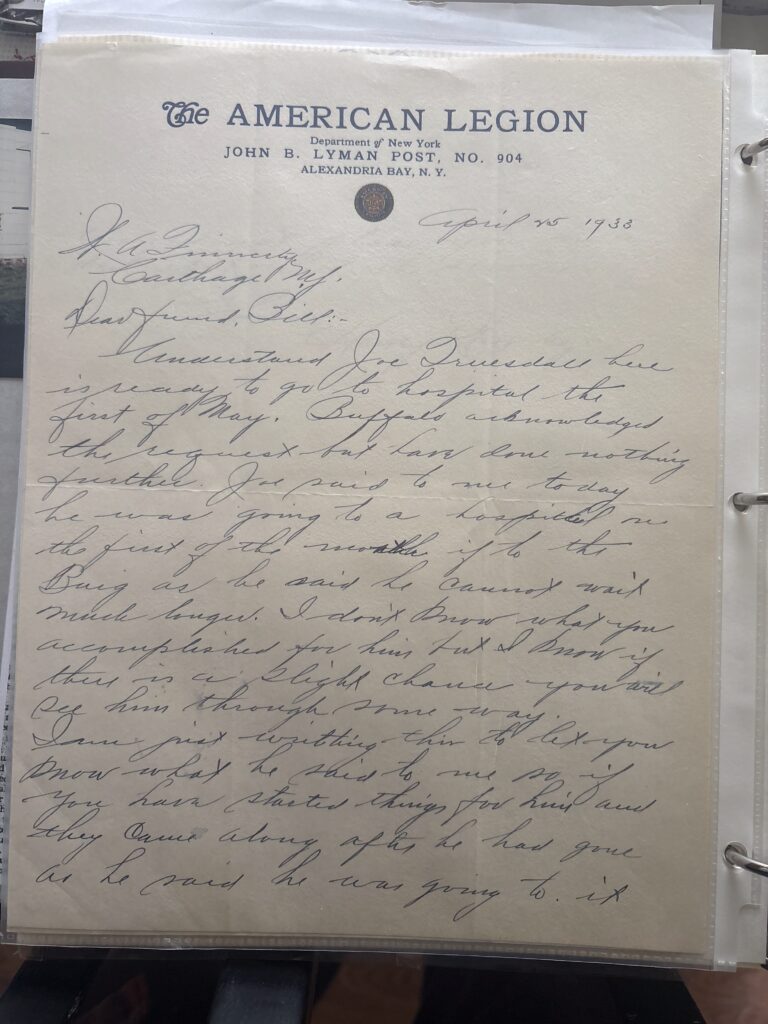 The AMERICAN LEGION
Department of New York
JOHN B. LYMAN POST, NO. 904
ALEXANDRIA BAY, N. Y.
April 25 1933
W. A
Carthage N.Y.
Dear friend, Bill:-
Understand Joe Truesdall here
is ready to go to hospital the
first of May. Buffalo acknowledged
the request but have done nothing
further. Joe said to me today
he was going to a hospital on
the first of the month if to the
as he said he cannot wait
much longer. I don't know what you
accomplished for him but I know if
there is a slight chance you will
see him through some way.
I am just writting this to let you
know what he said to me so if
you have started things for him and
they came along after he had gone
as he said he was going to. it